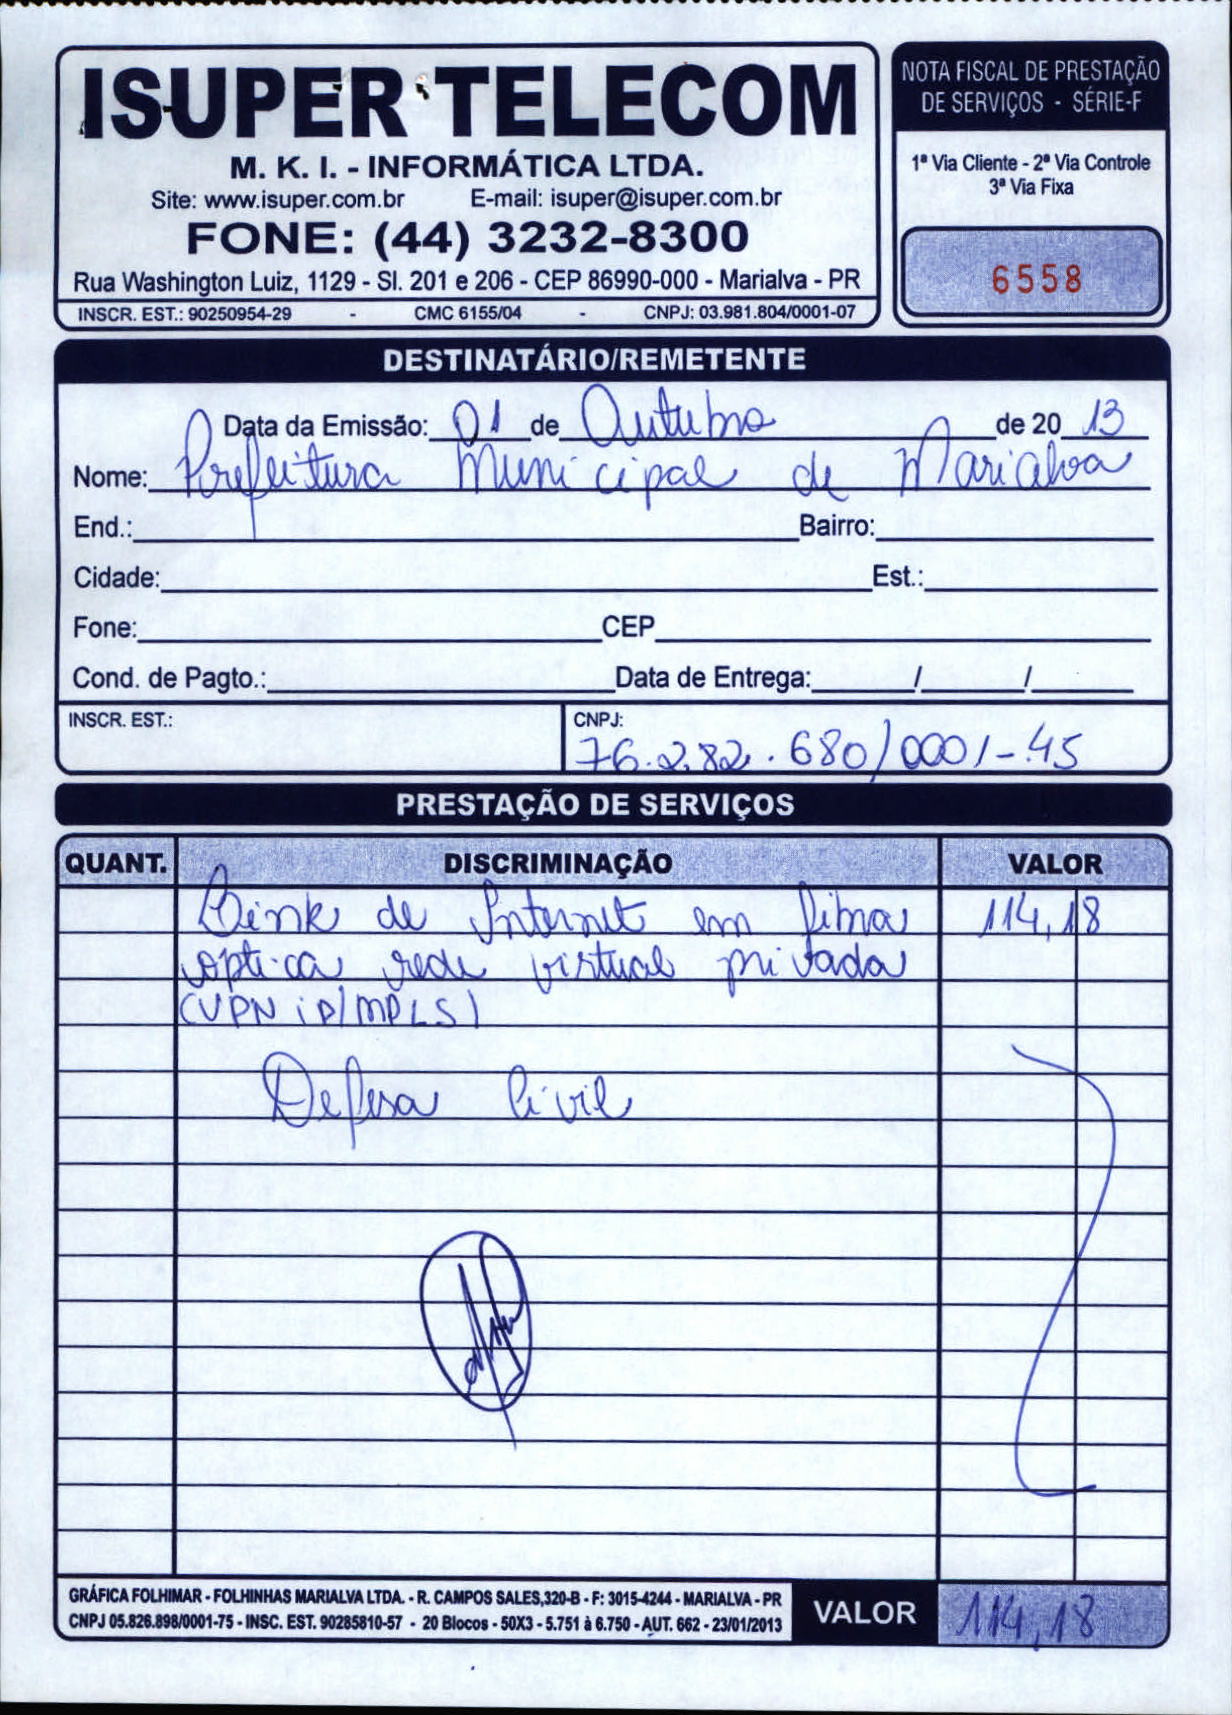 ISUPER TELECOM
M. K. I. - INFORMÁTICA LTDA.
Site: www.isuper.com.br E-mail: isuper@isuper.com.br
FONE: (44) 3232-8300
Rua Washington Luiz, 1129 - Sl. 201 e 206 - CEP 86990-000 - Marialva - PR
INSCR. EST.: 90250954-29 - CMC 6155/04 - CNPJ: 03.981.804/0001-07
NOTA FISCAL DE PRESTAÇÃO
DE SERVIÇOS - SÉRIE-F
1ª Via Cliente - 2ª Via Controle
3ª Via Fixa
6558
DESTINATÁRIO/REMETENTE
Data da Emissão: 01 de Outubro de 20 13
Nome: Prefeitura Municipal de Marialva
End.: Bairro:
Cidade: Est.:
Fone: CEP
Cond. de Pagto.: Data de Entrega: / /
INSCR. EST.: CNPJ:
76.282.680/0001-45
PRESTAÇÃO DE SERVIÇOS
QUANT. DISCRIMINAÇÃO VALOR
Link de Internet em fibra 114,18
optica rede virtual privada
(VPN iP/MPLS)
Defesa Civil
GRÁFICA FOLHIMAR - FOLHINHAS MARIALVA LTDA. - R. CAMPOS SALES,320-B - F: 3015-4244 - MARIALVA - PR
CNPJ 05.826.898/0001-75 - INSC. EST. 90285810-57 - 20 Blocos - 50X3 - 5.751 à 6.750 - AUT. 662 - 23/01/2013
VALOR 114,18